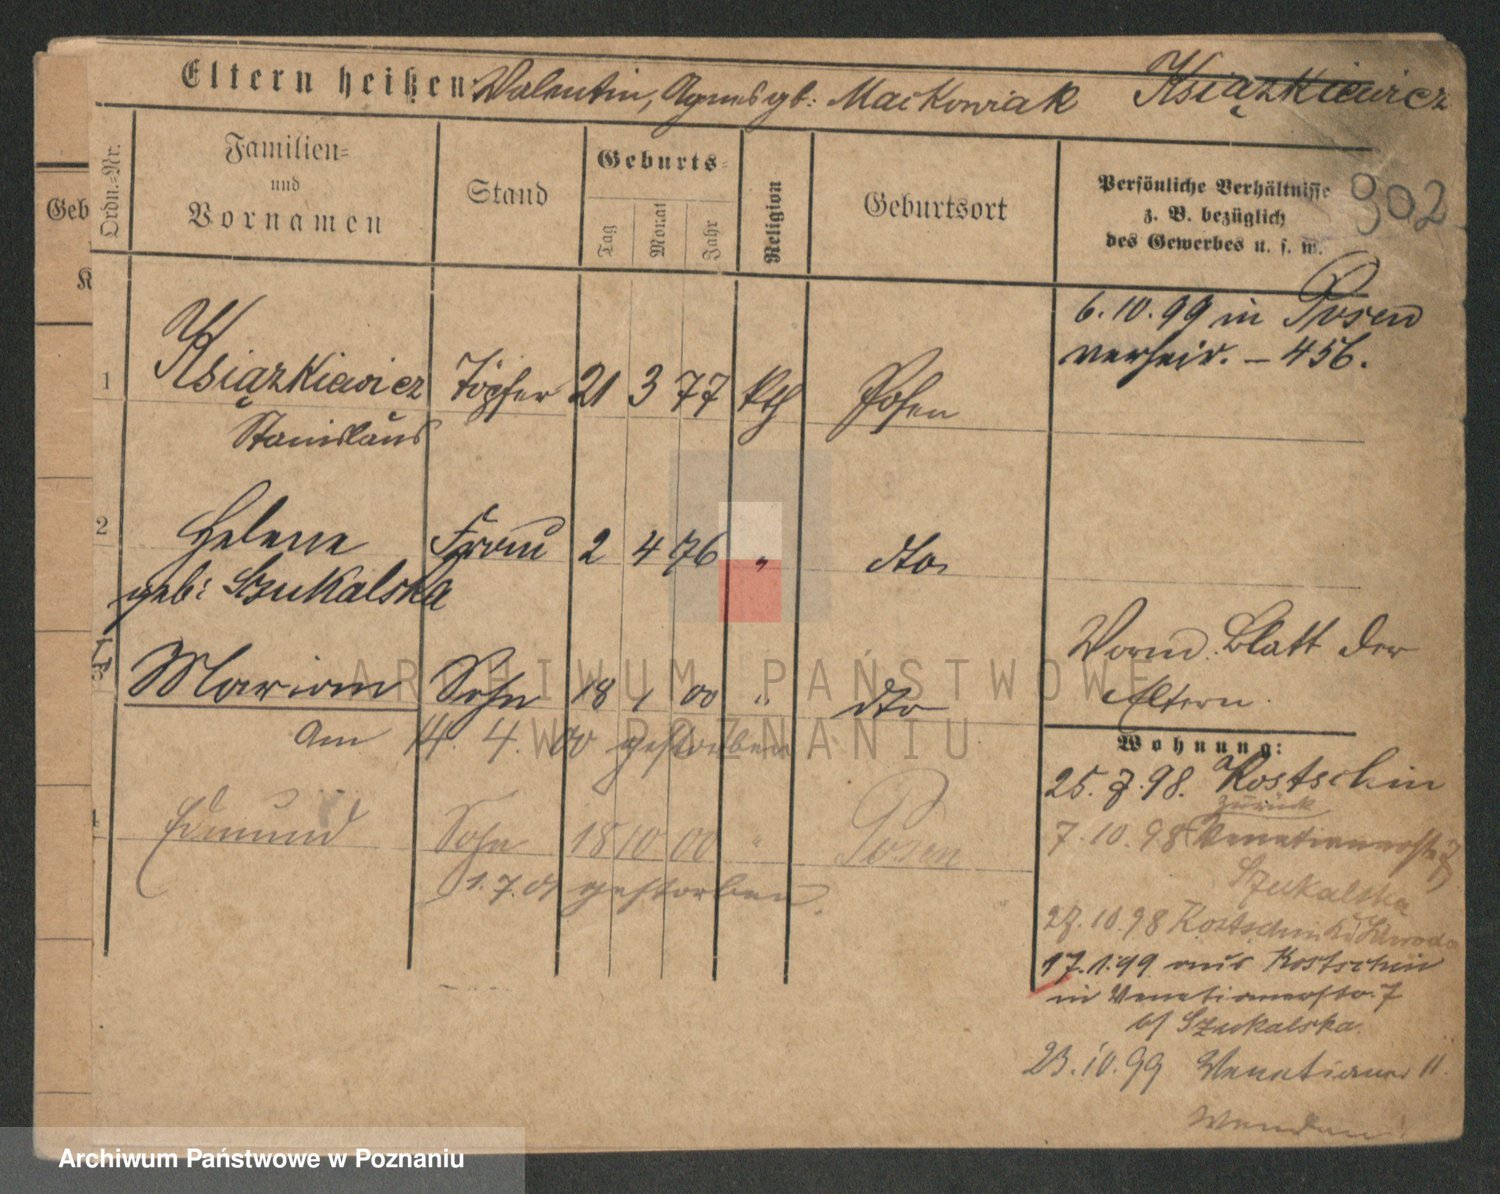 Eltern heißen: Valentin, Agnes gb: Maćkowiak Książkiewicz
Ordn.-Nr.
Familien-
und
Vornamen
Stand
Geburts-
Tag
Monat
Jahr
Religion
Geburtsort
Persönliche Verhältnisse
z. B. bezüglich
des Gewerbes u. s. w.
902
Geb
K
6.10.99 in Posen
verheir. – 456.
1 Książkiewicz Töpfer 21 3 77 kth Posen
Stanislaus
2 Helene Frau 2 4 76 " dto
geb: Szukalska
† 3 Marian Sohn 18 1 00 " dto
Vorm. Blatt der
Eltern.
am 14. 4. 00 gestorben
4 Edmund Sohn 18 10 00 " Posen
1.7.01 gestorben.
Wohnung:
25.7.98. Kostschin
zurück
7.10.98 Venetianerstr 7
Szukalska
27.10.98 Kostschin Kr Schroda
17.1.99 aus Kostschin
in Venetianerstr. 7
bf Szukalska.
23.10.99 Venetianer 11.
ARCHIWUM PAŃSTWOWE
W POZNANIU
Archiwum Państwowe w Poznaniu